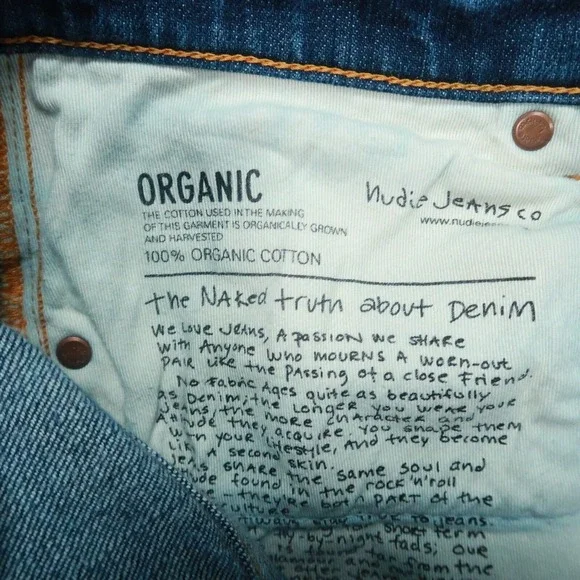 ORGANIC
THE COTTON USED IN THE MAKING
OF THIS GARMENT IS ORGANICALLY GROWN
AND HARVESTED
100% ORGANIC COTTON
nudie Jeans co
www.nudiejeans
the NAked truth about DeniM
We Love JeANs, A pAssion we shARe
with Anyone who mourns A worn-out
PAiR Like the PAssing of a close Friend.
No FABRic Ages quite as beautifully
as Denim; the Longer you weAR youR
JeAns, the more character and
they AcquiRe. you shApe them
youR Lifestyle, And they become
A second skin.
shARe the same soul and
found in the rock'n'roll
they're both PART of the
to jeans.
short term
by-night fads; our
from the